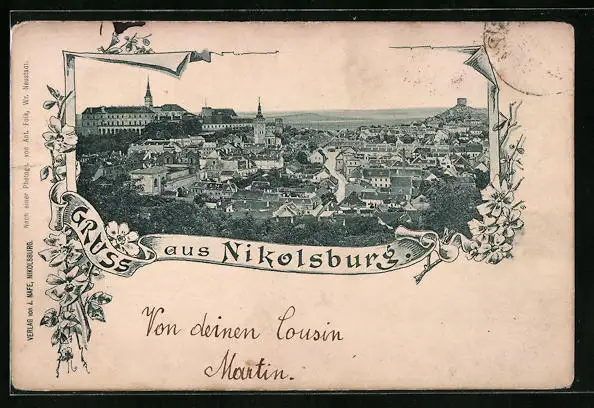 GRUSS aus Nikolsburg.
Von deinen Cousin
Martin.
VERLAG von J. NAFE, NIKOLSBURG.
Nach einer Photogr. von Ant. Folk, Wr. Neustadt.